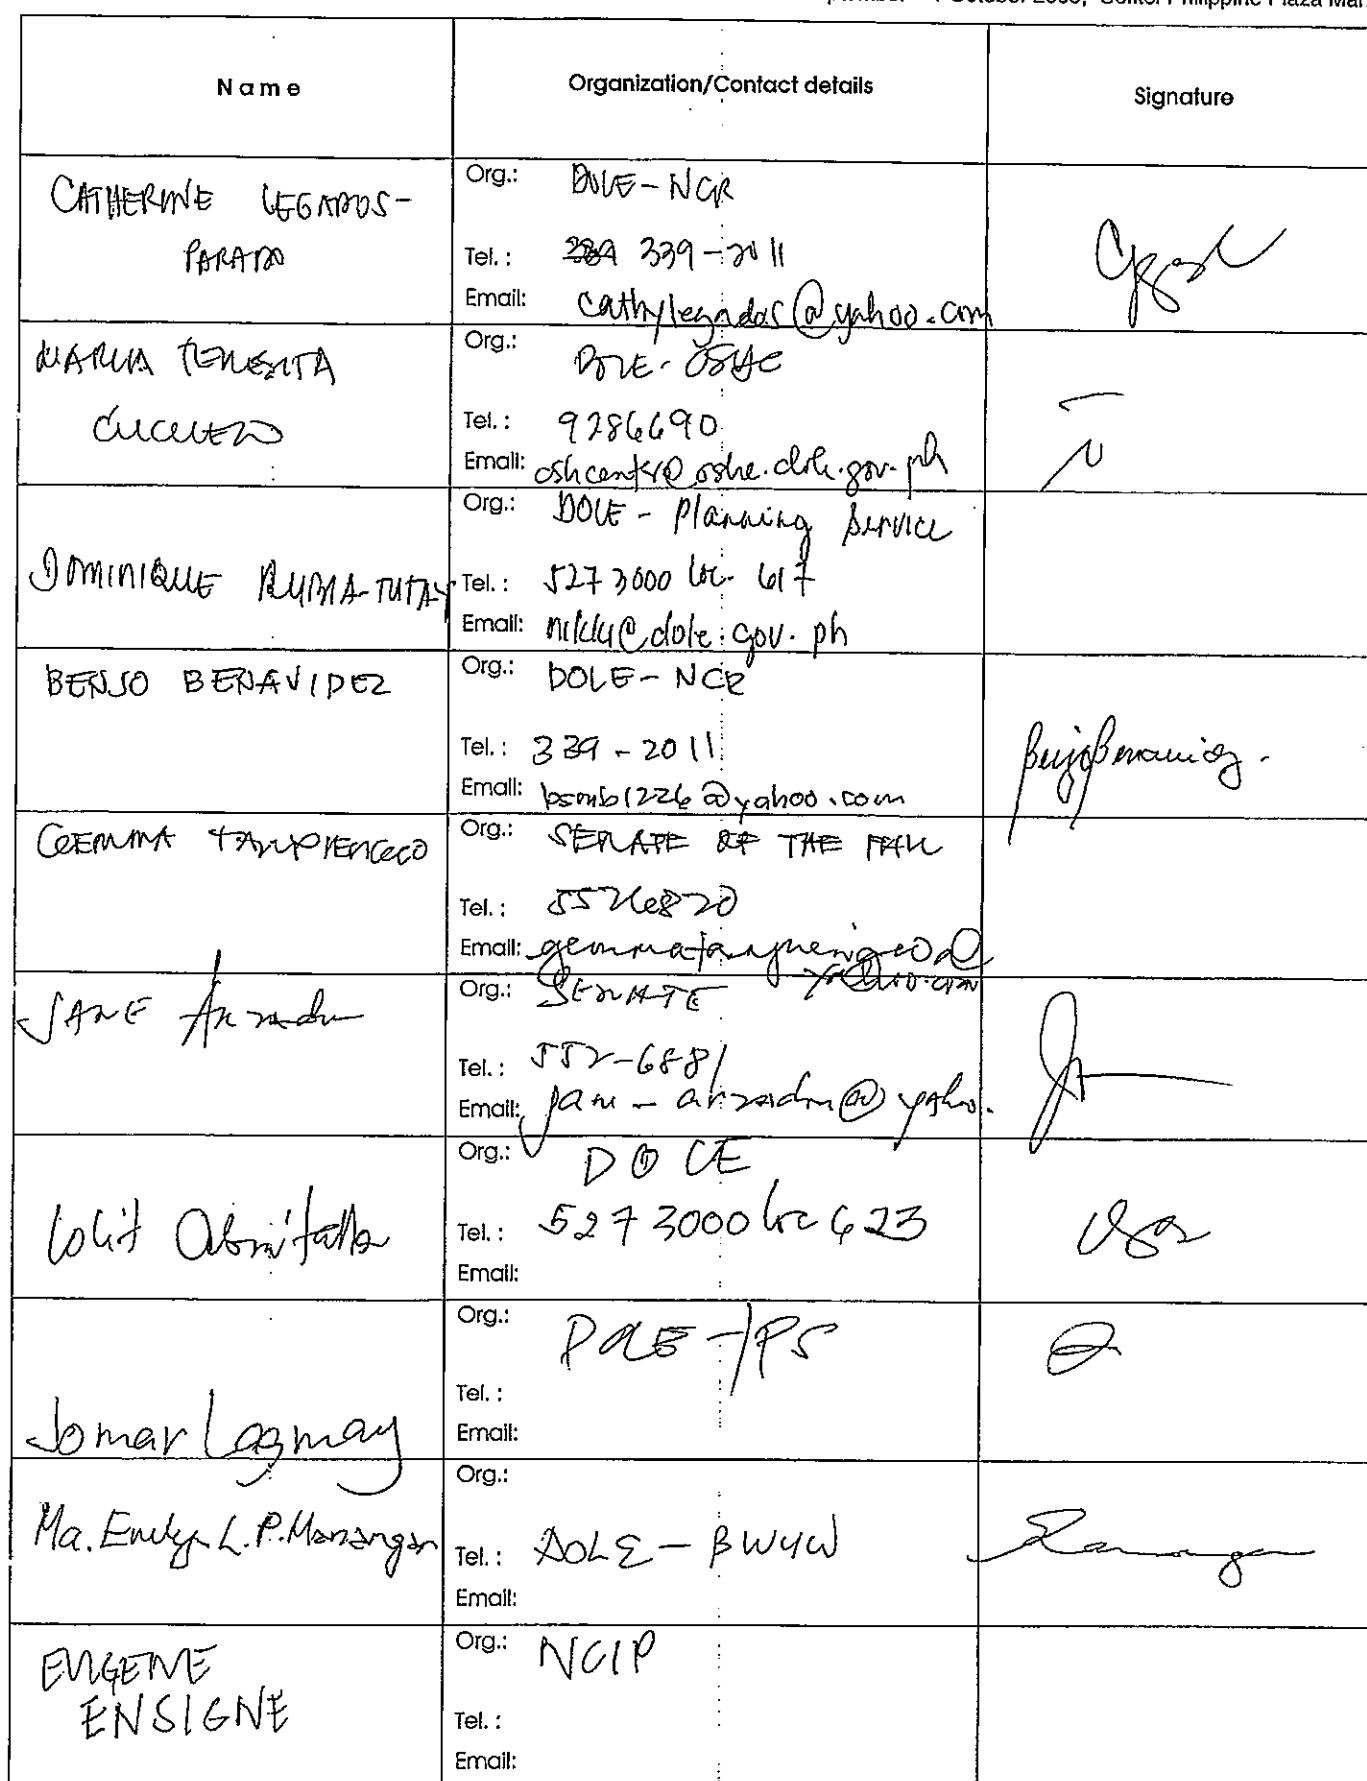 1 October 2008, Sofitel Philippine Plaza Man
Name Organization/Contact details Signature
CATHERINE LEGADOS-
PARADO
Org.: DOLE-NCR
Tel.: 339-2011
Email: cathylegados@yahoo.com
MARIA TERESITA
CUCUECO
Org.: DOLE-OSHC
Tel.: 9286690
Email: oshcenter@oshc.dole.gov.ph
DOMINIQUE RUBIA-TUTAY
Org.: DOLE - Planning Service
Tel.: 5273000 loc. 617
Email: nikki@dole.gov.ph
BENJO BENAVIDEZ
Org.: DOLE-NCR
Tel.: 339-2011
Email: bsmb1226@yahoo.com
GEMMA TANPIENGCO
Org.: SENATE OF THE PHIL
Tel.: 5526820
Email: gemmatanpiengco@
yahoo.com
JANE Arzadon
Org.: SENATE
Tel.: 552-6881
Email: jane-arzadon@yahoo.
Lolit Abritalla
Org.: DOLE
Tel.: 5273000 loc 623
Email:
Jomar Lagmay
Org.: DOLE-PS
Tel.:
Email:
Ma. Evelyn L.P. Manangan
Org.:
Tel.: DOLE - BWYW
Email:
EUGENE
ENSIGNE
Org.: NCIP
Tel.:
Email: